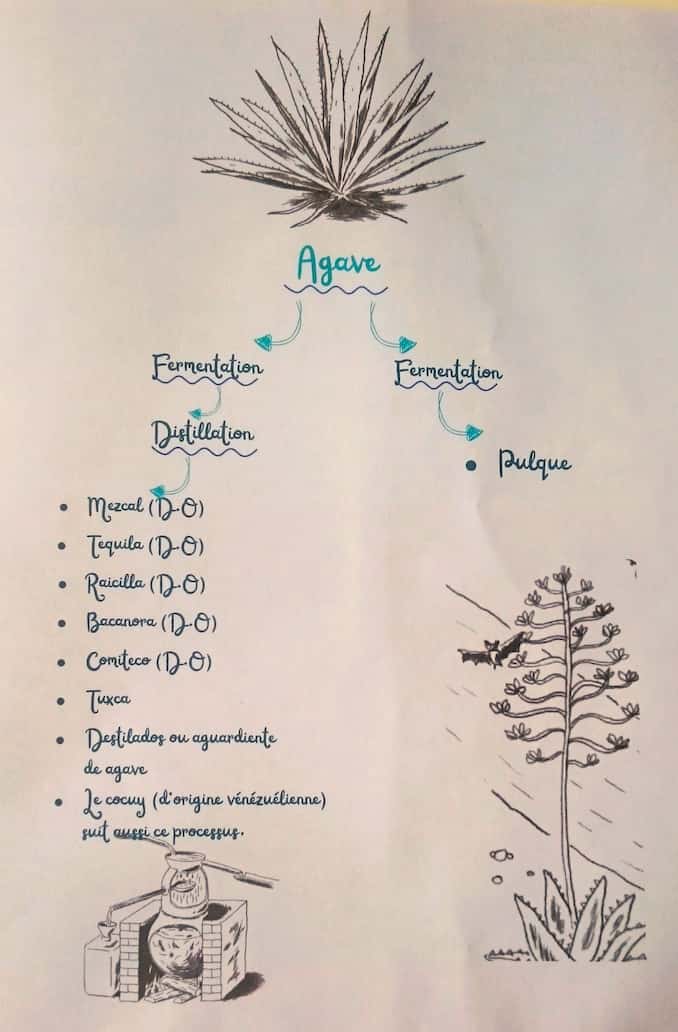 Agave
Fermentation
Distillation
• Mezcal (D-O)
• Tequila (D-O)
• Raicilla (D-O)
• Bacanora (D-O)
• Comiteco (D-O)
• Tuxca
• Destilados ou aguardiente
de agave
• Le cocuy (d'origine vénézuélienne)
suit aussi ce processus.
Fermentation
• Pulque